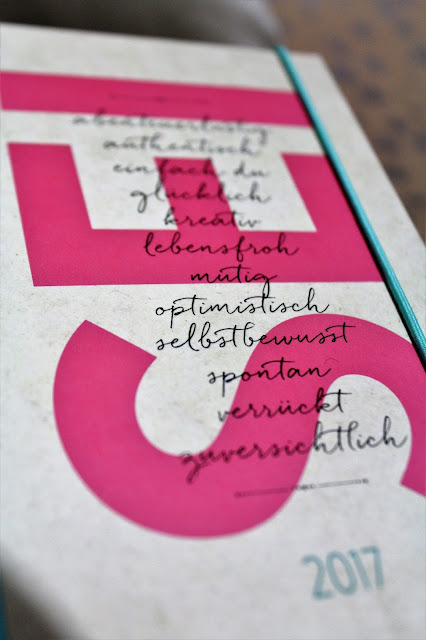 SEI
abenteuerlustig
authentisch
einfach du
glücklich
kreativ
lebensfroh
mutig
optimistisch
selbstbewusst
spontan
verrückt
zuversichtlich
2017